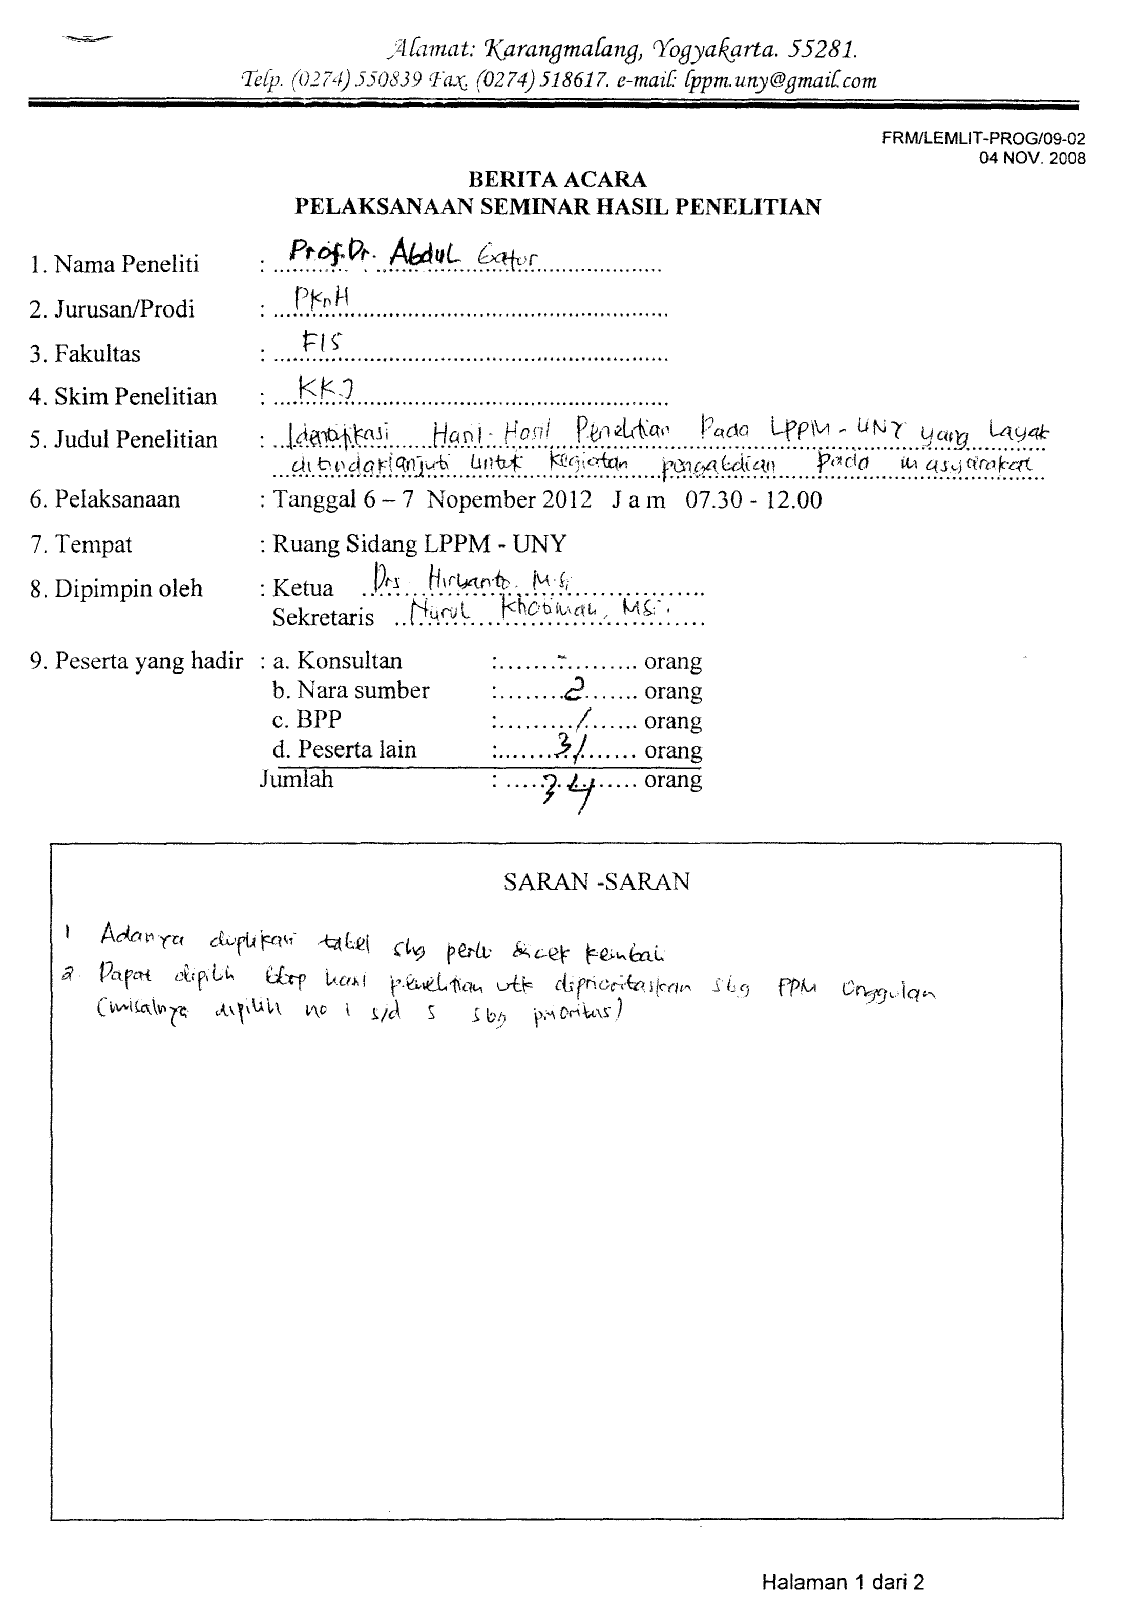 Alamat: Karangmalang, Yogyakarta. 55281.
Telp. (0274) 550839 Fax. (0274) 518617. e-mail: lppm.uny@gmail.com
FRM/LEMLIT-PROG/09-02
04 NOV. 2008
BERITA ACARA
PELAKSANAAN SEMINAR HASIL PENELITIAN
1. Nama Peneliti : Prof. Dr. Abdul Gafur
2. Jurusan/Prodi : PKnH
3. Fakultas : FIS
4. Skim Penelitian : KKJ
5. Judul Penelitian : Identifikasi Hasil-Hasil Penelitian Pada LPPM - UNY yang Layak
ditindaklanjuti untuk kegiatan pengabdian Pada masyarakat
6. Pelaksanaan : Tanggal 6 – 7 Nopember 2012 J a m 07.30 - 12.00
7. Tempat : Ruang Sidang LPPM - UNY
8. Dipimpin oleh : Ketua Drs M.Si
Sekretaris Nurul Khotimah, MSi.
9. Peserta yang hadir : a. Konsultan : - orang
b. Nara sumber : 2 orang
c. BPP : 1 orang
d. Peserta lain : 31 orang
Jumlah : 34 orang
SARAN -SARAN
1 Adanya duplikasi tabel shg perlu dicek kembali
2 Dapat dipilih bbrp hasil penelitian utk diprioritaskan sbg PPM Unggulan
(misalnya dipilih no 1 s/d 5 sbg prioritas)
Halaman 1 dari 2